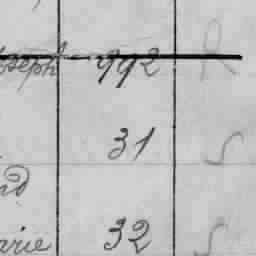 seph 992 R
31 S
nd
arie 32 S